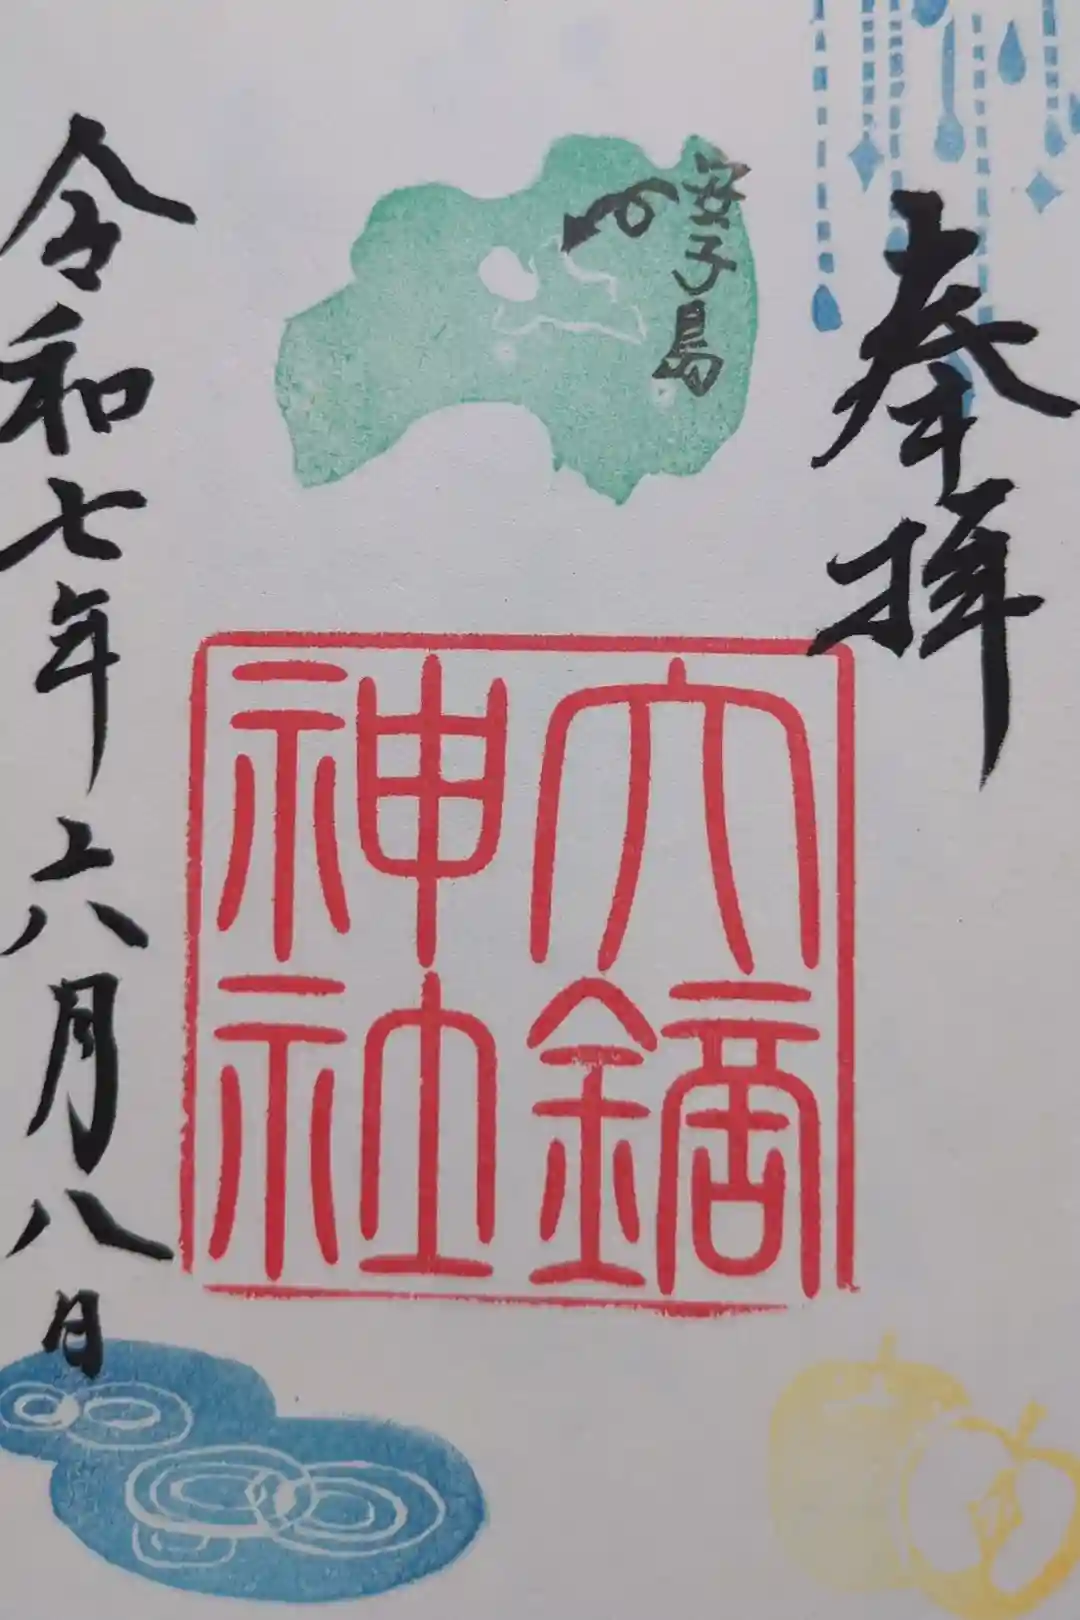 奉拝
安子島
六鏑
神社
令和七年六月八日